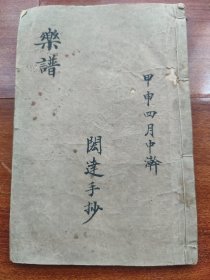 甲申四月中澣
閎達手抄
樂譜